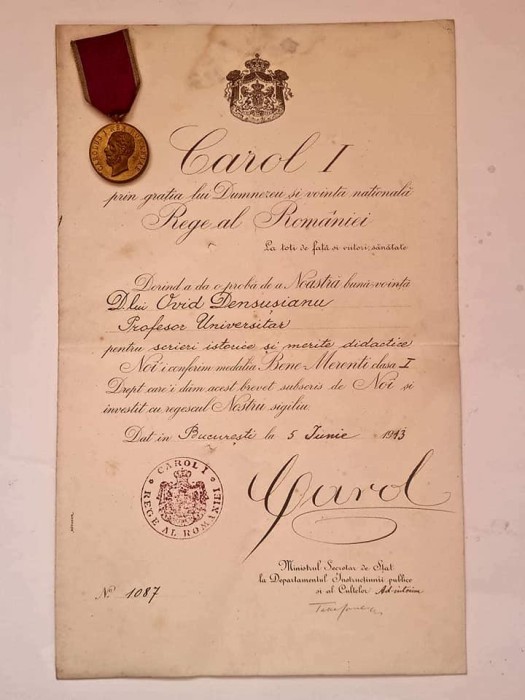 CAROL I REGE AL ROMANIEI
Carol I
prin grația lui Dumnezeu și voința națională
Rege al României
La toți de față și viitori, sănătate
Dorind a da o probă de a Noastră bună-voință
D-lui Ovid Densușianu
Profesor Universitar
pentru scrieri istorice și merite didactice
Noi i conferim medalia Bene-Merenti clasa I
Drept care'i dăm acest brevet subscris de Noi și
investit cu regescul Nostru sigiliu.
Dat in București la 5 Iunie 1913
CAROL I
REGE AL ROMANIEI
Carol
Ministrul Secretar de Stat
la Departamentul Instrucțiunii publice
și al Cultelor Ad-interim
No. 1087